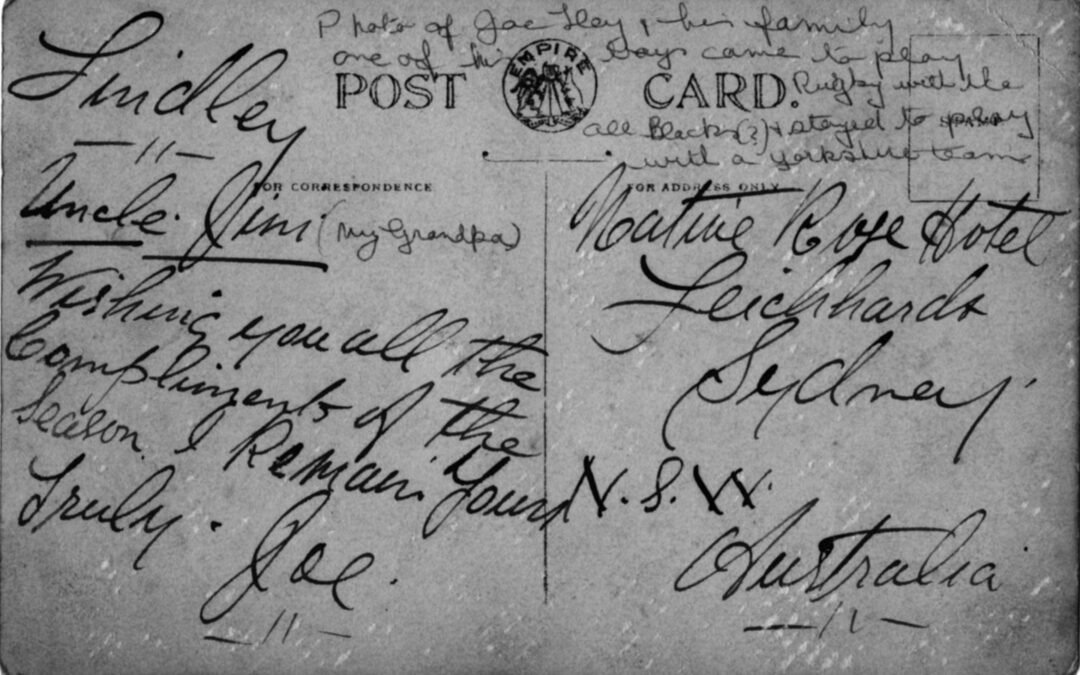 Photo of Joe & his family
one of his Boys came to play
Rugby with the
all Blacks(?) & stayed to play
with a Yorkshire team
EMPIRE
POST CARD.
FOR CORRESPONDENCE
Lindley
Uncle Jim (my Grandpa)
Wishing you all the
Compliments of the
Season. I Remain Yours
Truly.
Joe.
FOR ADDRESS ONLY
Native Rose Hotel
Leichhardt
Sydney.
N.S.W.
Australia